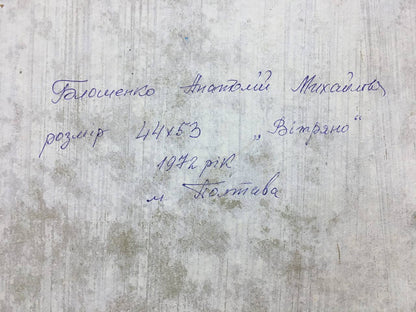 Голошенко Анатолій Михайлов
розмір 44х53 „Вітряно“
1972 рік
м Полтава